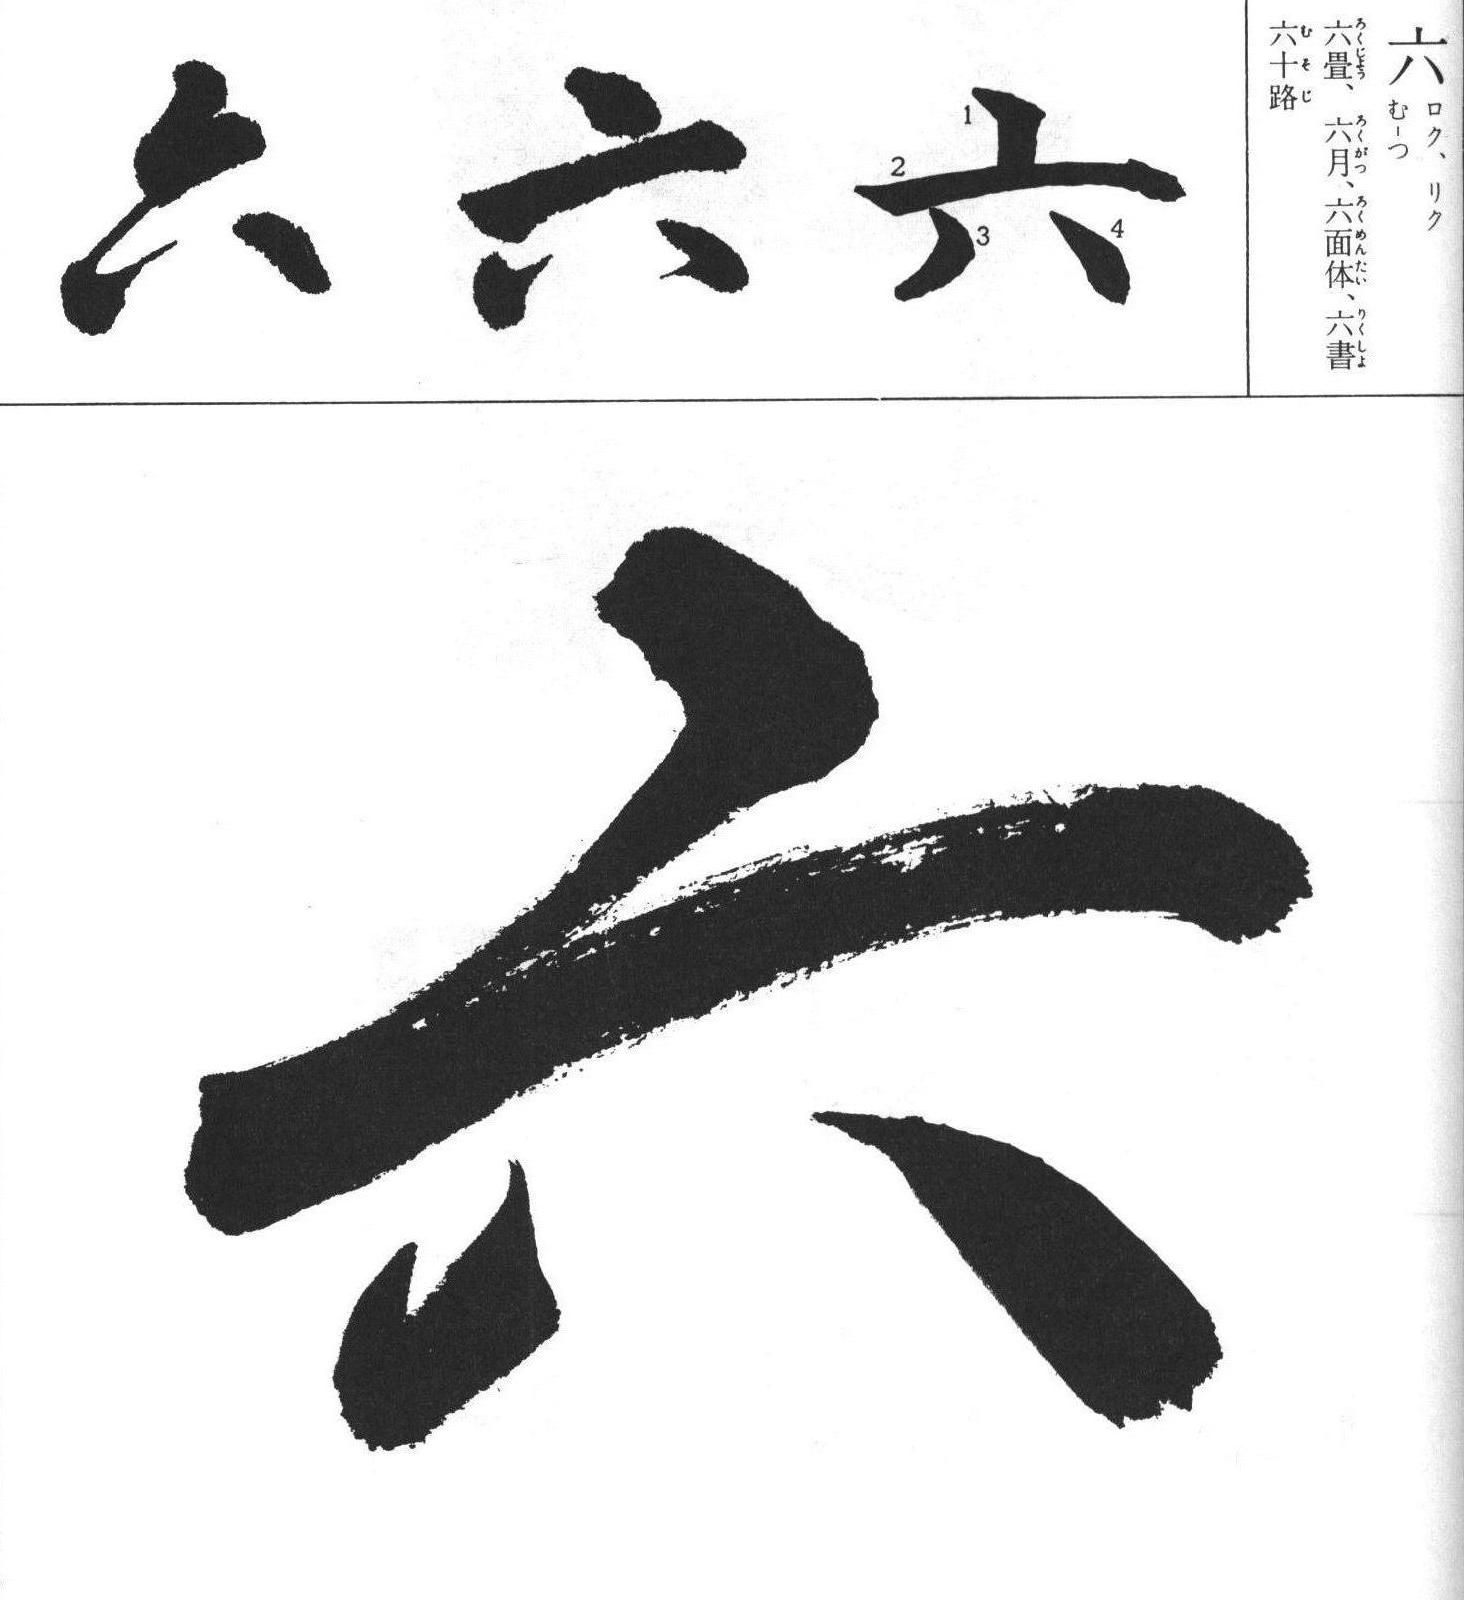 六
ロク、リク
むーつ
六畳、六月、六面体、六書
ろくじょう ろくがつ ろくめんたい りくしょ
六十路
むそじ
1
2
3
4
六
六
六
六